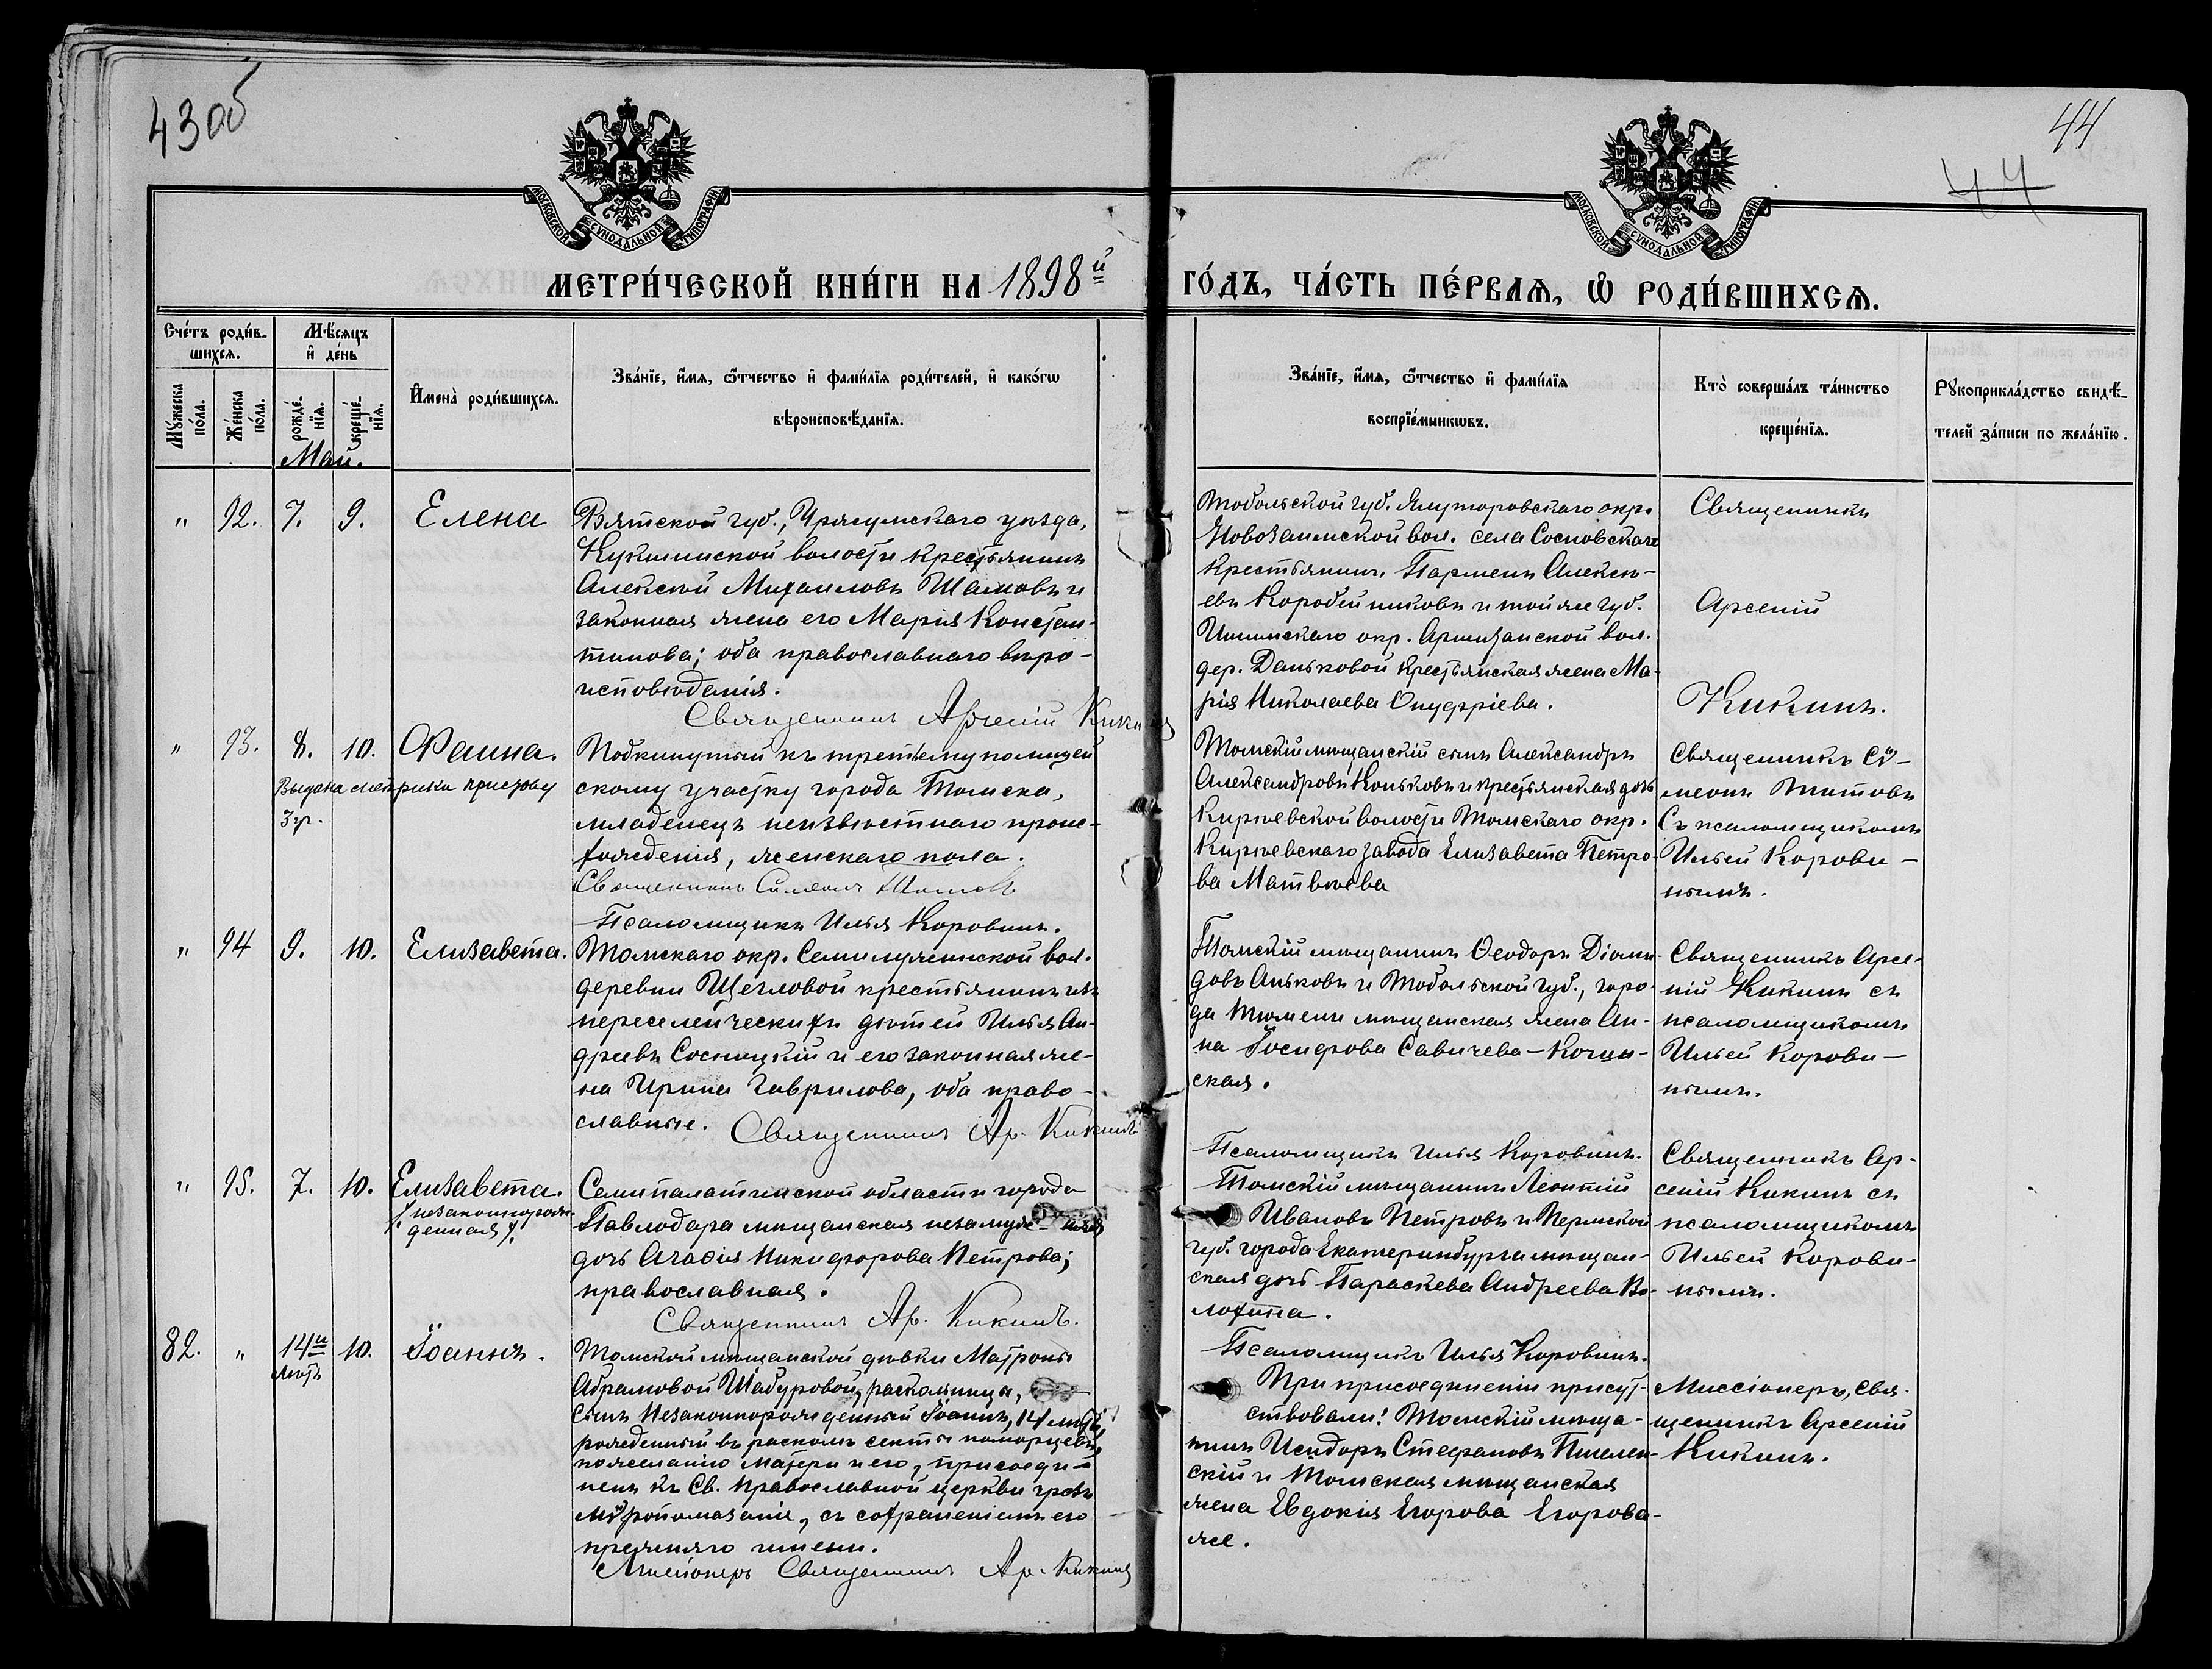 43об
44
44
МОСКОВСКОЙ СѴНОДАЛЬНОЙ ТИПОГРАФІИ
МОСКОВСКОЙ СѴНОДАЛЬНОЙ ТИПОГРАФІИ
МЕТРИ́ЧЕСКОЙ КНИ́ГИ НА 1898й ГО́ДЪ, ЧА́СТЬ ПЕ́РВАЯ, Ѿ РОДИ́ВШИХСЯ.
Сче́тъ роди́в-
шихся.
Мѣ́сяцъ
и҆ де́нь
Мꙋжеска по́ла.
Же́нска по́ла.
рожде́нїя.
креще́нїя.
Май.
И҆мена̀ роди́вшихся.
Зва́нїе, и҆́мя, ѻ҆́тчество и҆ фами́лїя роди́телей, и҆ како́гѡ
вѣроисповѣ́данїя.
Зва́нїе, и҆́мя, ѻ҆́тчество и҆ фами́лїя
воспрїе́мникѡвъ.
Кто̀ соверша́лъ та́инство
креще́нїя.
Рꙋкоприкла́дство свидѣ́-
телей за́писи по жела́нїю.
" 92. 7. 9. Елена
Вятской губ., Уржумскаго уѣзда,
Кукшинской волости крестьянинъ
Алексѣй Михаиловъ Шамовъ и
законная жена его Марія Констан-
тинова; оба православнаго вѣро-
исповѣданія.
Священникъ Арсеній Кикинъ
Тобольской губ. Ялуторовскаго окр.
Новозаимской вол. села Сосновскаго
крестьянинъ Парменъ Алексѣ-
евъ Коробейниковъ и той же губ.
Ишимскаго окр. Армизанской вол.
дер. Даньковой крестьянская жена Ма-
рія Николаева Онуфріева.
Священникъ
Арсеній
Кикинъ.
" 93. 8. 10. Фаина.
Выдана метрика приставу
3 уч.
Подкинутый къ третьему полицей
скому участку города Томска,
младенецъ неизвѣстнаго проис-
хожденія, женскаго пола.
Священникъ Симеонъ Титовъ
Псаломщикъ Илья Коровинъ.
Томскій мѣщанскій сынъ Александръ
Александровъ Коньковъ и крестьянская дочь
Кирѣевской волости Томскаго окр.
Кирѣевскаго завода Елизавета Петро-
ва Матвѣева
Священникъ Сѵ-
меонъ Титовъ
Съ псаломщикомъ
Ильей Корови-
нымъ.
" 94 9. 10. Елизавета.
Томскаго окр. Семилужинской вол.
деревни Щегловой крестьянинъ изъ
переселенческихъ дѣтей Илья Ан-
дреевъ Сосницкій и его законная же-
на Ирина Гаврилова, оба право-
славные.
Священникъ Ар. Кикинъ
Псаломщикъ Илья Коровинъ.
Томскій мѣщанинъ Ѳеодоръ Діоми-
довъ Аньковъ и Тобольской губ., горо-
да Тюмени мѣщанская жена Ан-
на Іосифова Савичева-Кочин-
ская.
Священникъ Арсе-
ній Кикинъ съ
псаломщикомъ
Ильей Корови-
нымъ.
" 95. 7. 10. Елизавета.
/незаконнорож-
денная/.
Семипалатинской области города
Павлодара мѣщанская незамуж-няя
дочь Агаѳія Никифорова Петрова;
православная.
Священникъ Ар. Кикинъ.
Псаломщикъ Илья Коровинъ.
Томскій мѣщанинъ Леонтій
Ивановъ Петровъ и Пермской
губ. города Екатеринбурга мѣщан-
ская дочь Параскева Андреева Во-
лохина.
Священникъ Ар-
сеній Кикинъ съ
псаломщикомъ
Ильей Корови-
нымъ.
82. " 14и лѣтъ 10. Іоаннъ.
Томской мѣщанской дѣвки Матроны
Абрамовой Шабуровой, раскольницы,
сынъ незаконнорожденный Іоаннъ, 14 лѣтъ,
рожденный въ расколѣ секты поморцевъ,
по желанію матери и его, присоеди-
ненъ къ Св. Православной церкви чрезъ
Мѵропомазаніе, съ сохраненіемъ его
прежняго имени.
Миссіонеръ Священникъ Ар. Кикинъ
При присоединеніи присут-
ствовали: Томскій мѣща-
нинъ Исидоръ Стефановъ
и Томская мѣщанская
жена Евдокія Егорова Егорова-
же.
Миссіонеръ, Свя-
щенникъ Арсеній
Кикинъ.